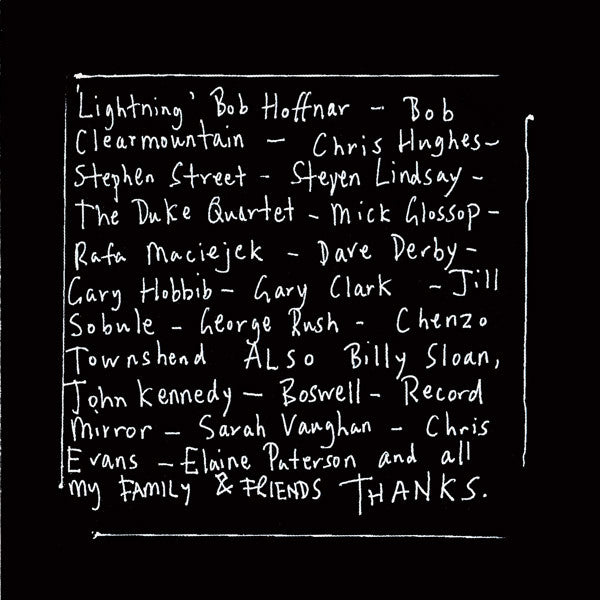 'Lightning' Bob Hoffnar - Bob
Clearmountain - Chris Hughes -
Stephen Street - Steven Lindsay -
The Duke Quartet - Mick Glossop -
Rafa Maciejek - Dave Derby -
Gary Hobbib - Gary Clark - Jill
Sobule - George Rush - Chenzo
Townshend ALSO Billy Sloan,
John Kennedy - Boswell - Record
Mirror - Sarah Vaughan - Chris
Evans - Elaine Paterson and all
my FAMILY & FRIENDS THANKS.